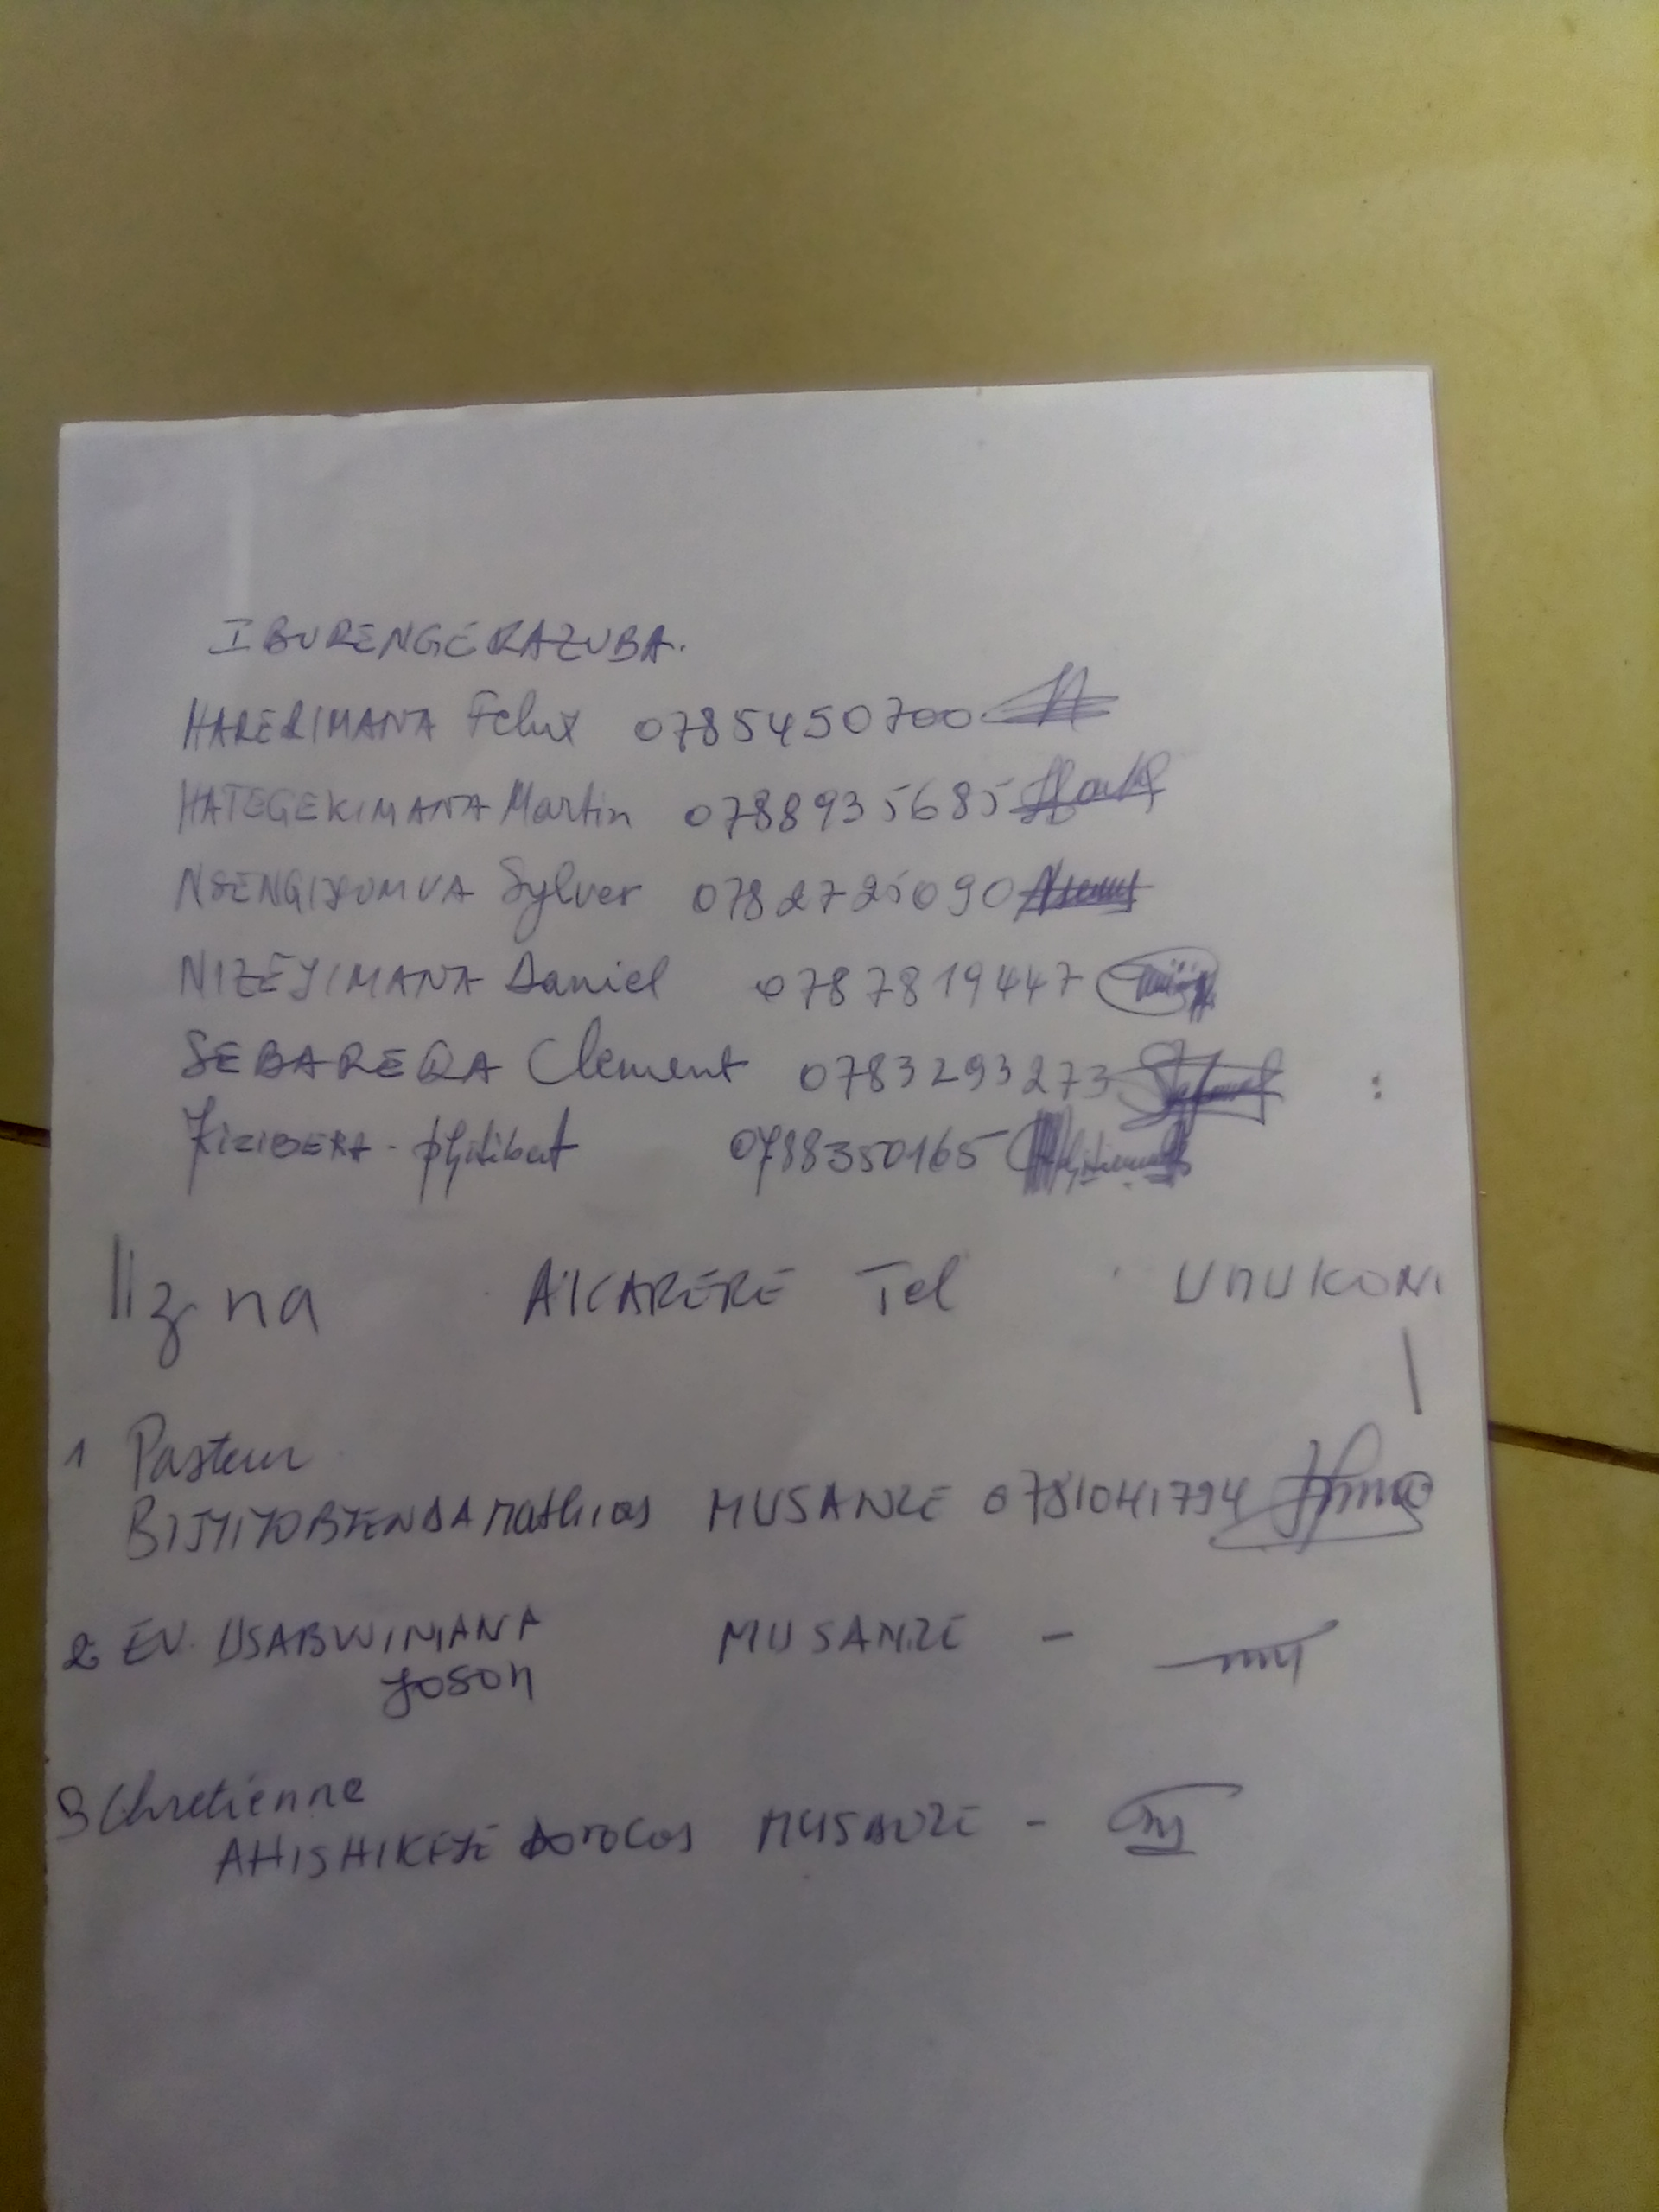 IBURENGERAZUBA.
HARERIMANA Felix 0785450700
HATEGEKIMANA Martin 0788935685
NSENGIYUMVA Sylver 0782725090
NIZEYIMANA Daniel 0787819447
SEBAREQA Clement 0783293273
0788350165
na AKARERE Tel UMUKONI
1 Pasteur
Mathias MUSANZE 0781041794
2 EV. USABWIMANA MUSANZE -
JOSON
3 Chretienne
AHISHIKEYE Dorocas MUSANZE -